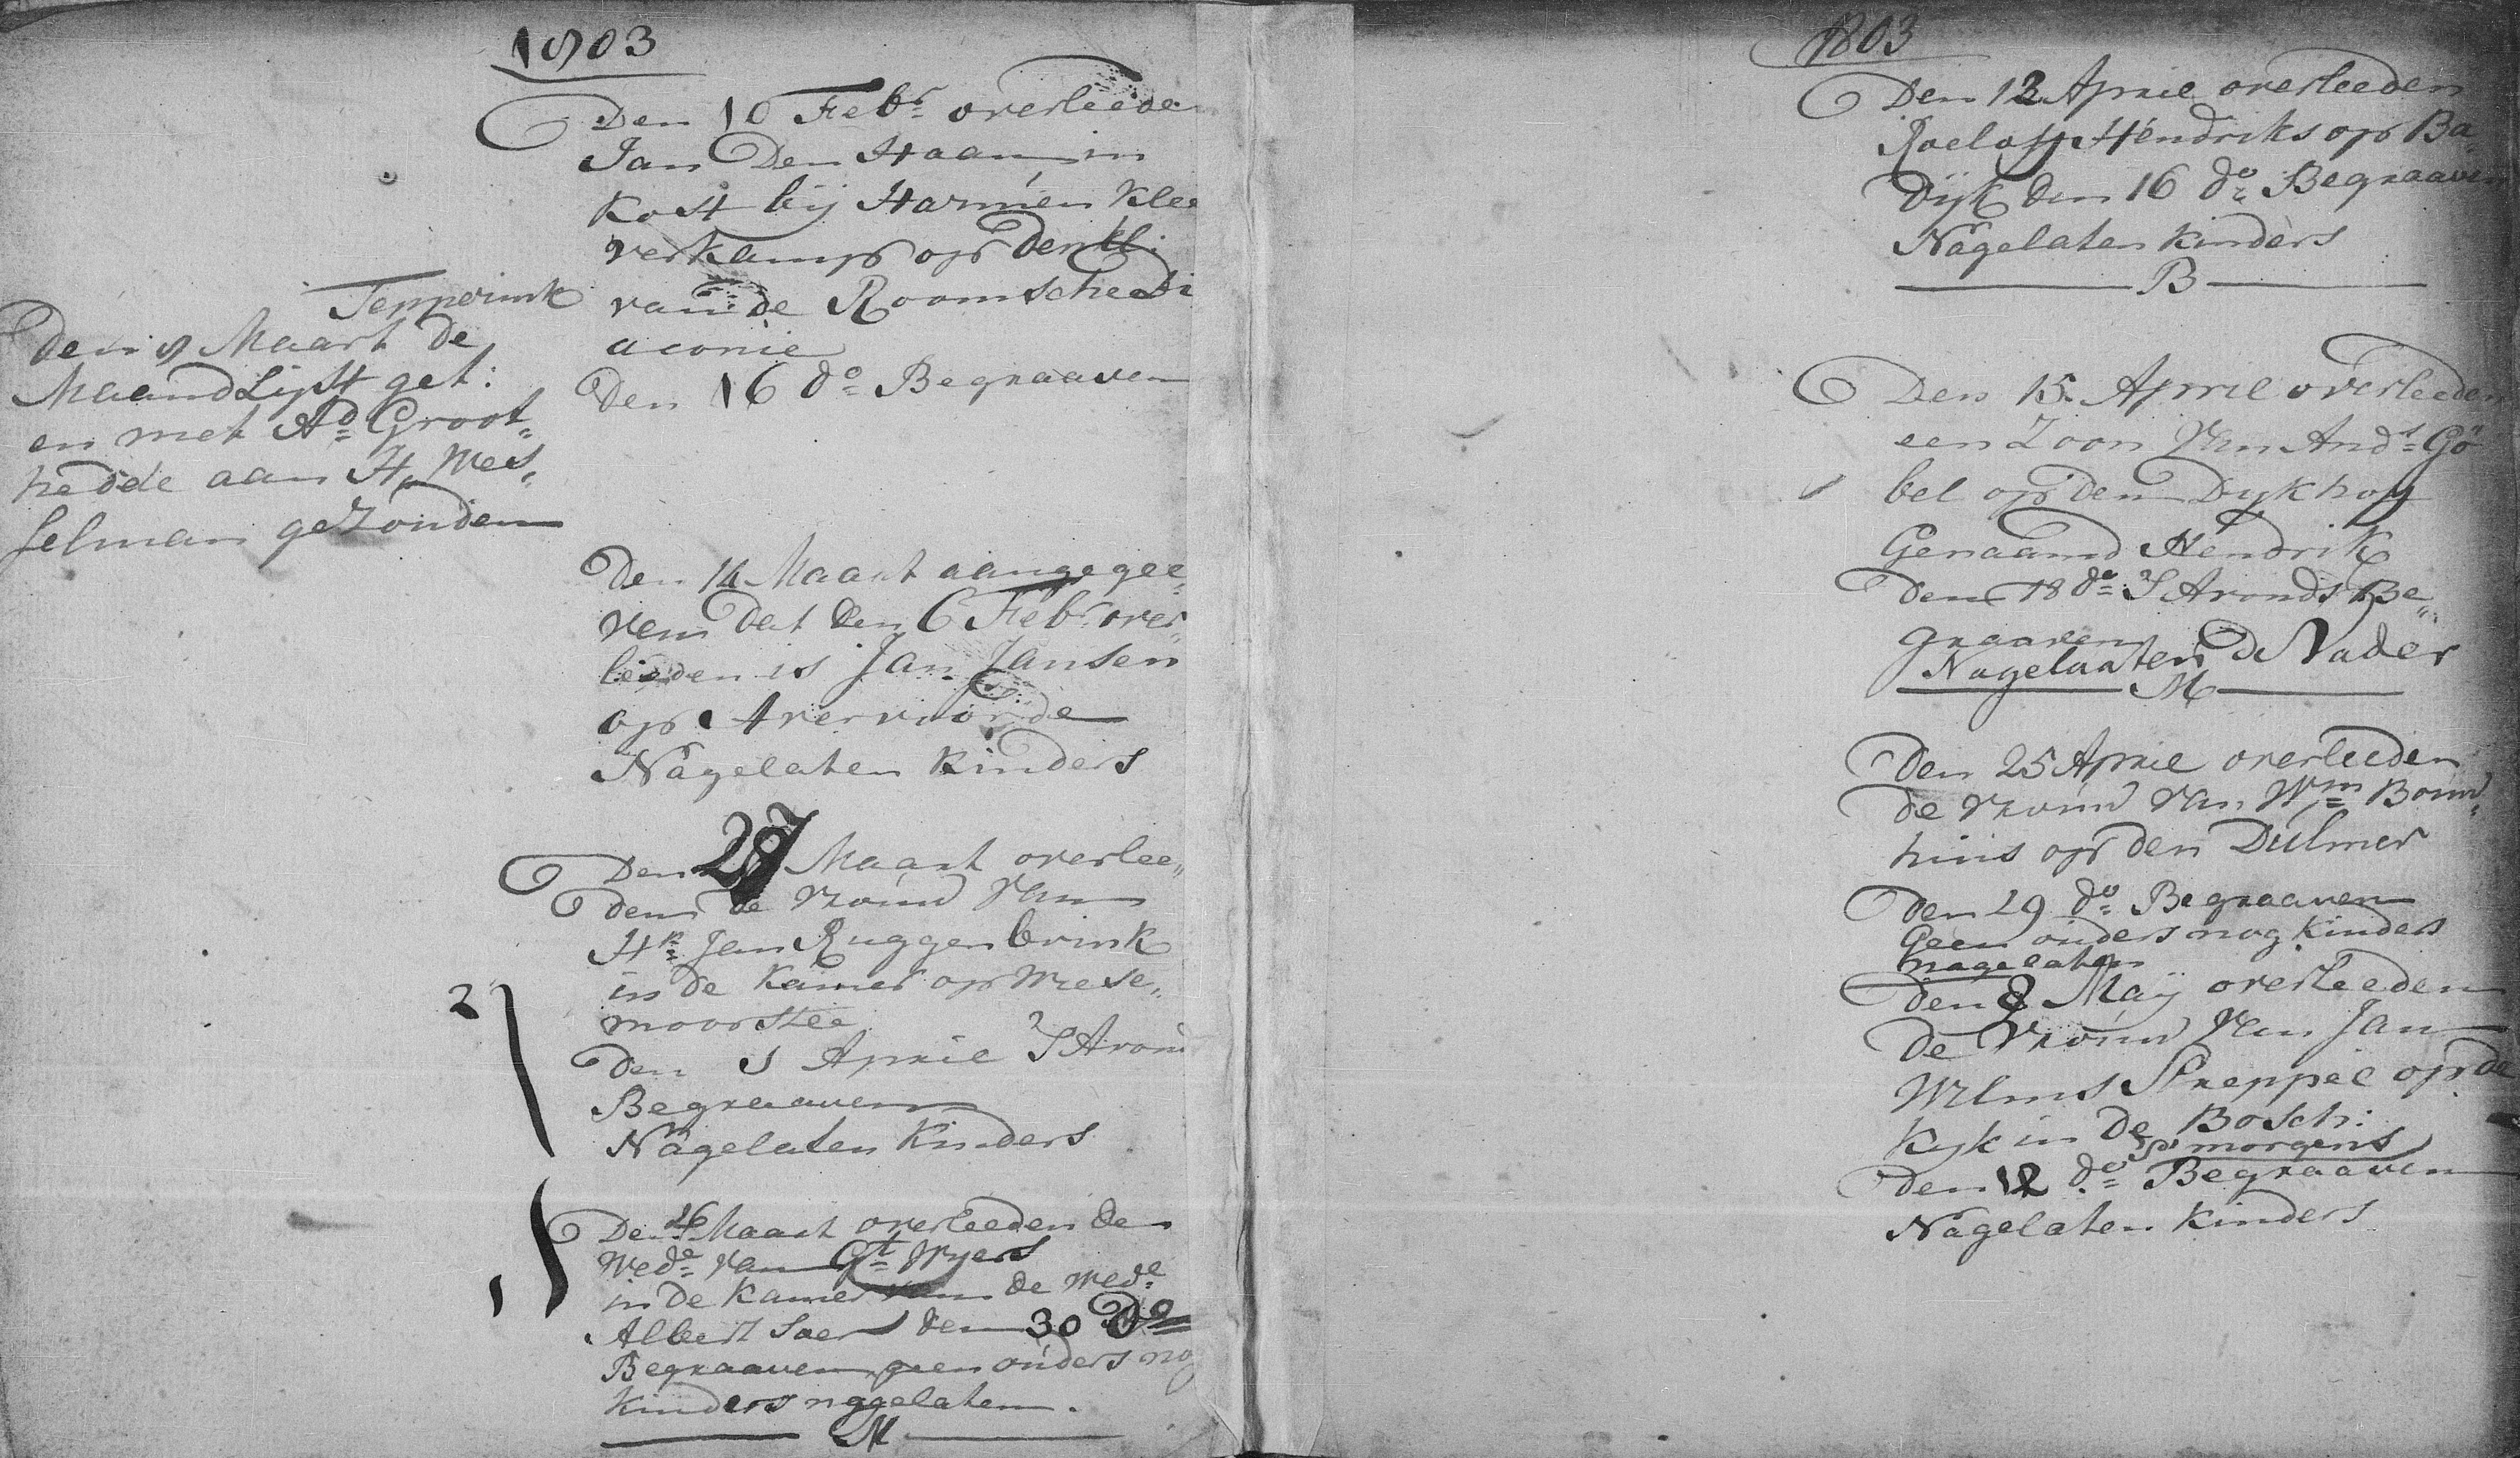 1803
Den 10 Febr overleeden
Jan Den Haan in
Kost bij Harmen Klee
verkamp op den kl:
van de Roomsche Di
aconie
Den 16 do Begraaven
Tepperink
Den 8 Maart de
Maand Lijst get:
en met Ad Groot„
hedde aan H, Wes„
selman gezonden
Den 14 Maart aangegee„
ven dat den 6 Febr over„
leeden is Jan Jansen
op Avervoorde
Nagelaten Kinders
Den 27 Maart overlee„
den de Vrouw Van
Hk Jan Ruggenbrink
in de Kamer op Wese„
moorstee
2
Den 1 April 'S Avond
Begraaven
Nagelaten Kinders
Den 26 Maart overleeden de
Wede van Gt Wyers
in de Kamer van de Wede
1
Albert Saer den 30 do
Begraaven geen ouders nog
Kinders nagelaten.
M
1803
Den 12 April overleeden
Roeloff Hendriks op Ba„
Dijk den 16 do Begraaven
Nagelaten Kinders
B
Den 15 April overleeden
een Zoon Van Ands Gö„
bel op den Dykhoff
Genaamd Hendrik
Den 18 do 'S Avonds Be„
graaven
Nagelaaten D Vader
M
Den 25 April overleeden
de Vrouw Van Wm Bouw„
huis op den Dulmer
Den 29 do Begraaven
Geen ouders nog Kinders
nagelaten
Den 8 Maÿ overleeden
De Vrouw Van Jan
Wlms Streppel op de
Kyk in De Bosch:
'S morgens
Den 12 do Begraaven
Nagelaten Kinders